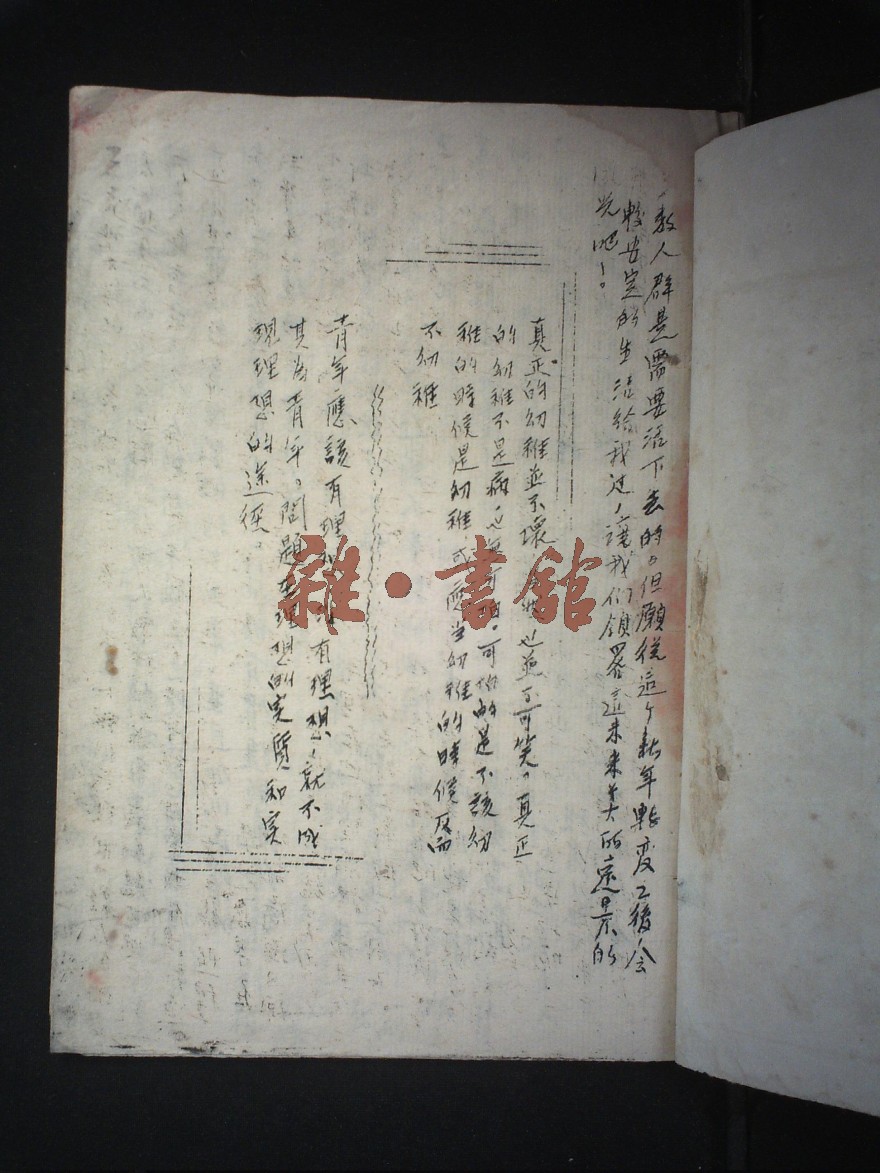 敎人群是需要活下去的。但願從這个新年転变之後，会
較安定的生活給我过，讓我们領畧這未来

的遠景的
光吧！。
真正的幼稚並不壞 也並不可笑。真正
的幼稚不是病，也 可怕。可怕的是不該幼
稚的時候是幼稚，或應当幼稚的時候反而
不幼稚
青年應該有理想 有理想，就不成
其为青年。問題在理想的实質和实
現理想的途徑。
雜·書舘